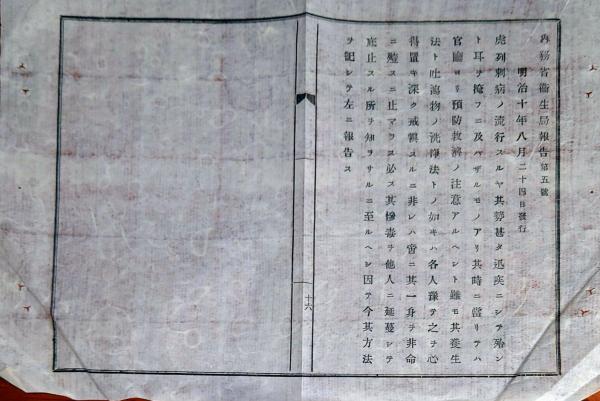 內務省衞生局報告第五號
明治十年八月二十四日發行
虎列剌病ノ流行スルヤ其勢甚タ迅疾ニシテ殆ン
ト耳ヲ掩フニ及ハザルモノアリ其時ニ當リテハ
官廳ヨリ預防救濟ノ注意アルヘシト雖モ其養生
法ト吐瀉物ノ洗淨法トノ如キハ各人豫テ之ヲ心
得置キ深ク戒愼スルニ非レハ啻ニ其一身ヲ非命
ニ殪スニ止マラス必ス其慘毒ヲ他人ニ延蔓シテ
底止スル所ヲ知ラサルニ至ルヘシ因テ今其方法
ヲ記シテ左ニ報告ス
十六